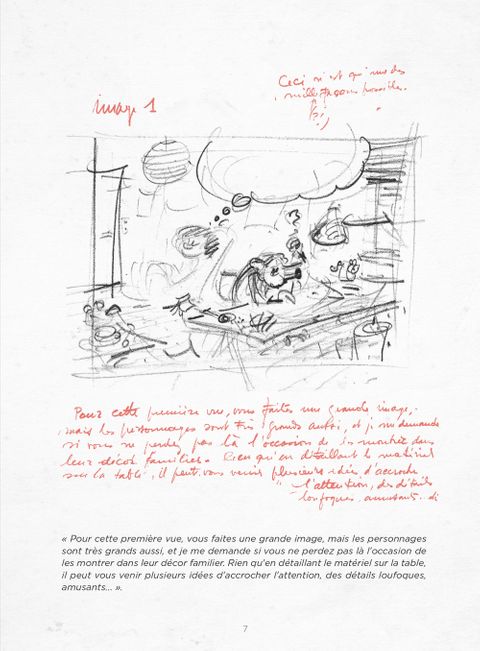 Ceci n'est qu'une des
mille façons possibles.
image 1
Pour cette première vue, vous faites une grande image,
mais les personnages sont très grands aussi, et je me demande
si vous ne perdez pas là l'occasion de les montrer dans
leur décor familier. Rien qu'en détaillant le matériel
sur la table, il peut vous venir plusieurs idées d'accrocher
l'attention, des détails
loufoques, amusants...
« Pour cette première vue, vous faites une grande image, mais les personnages
sont très grands aussi, et je me demande si vous ne perdez pas là l'occasion de
les montrer dans leur décor familier. Rien qu'en détaillant le matériel sur la table,
il peut vous venir plusieurs idées d'accrocher l'attention, des détails loufoques,
amusants... ».
7